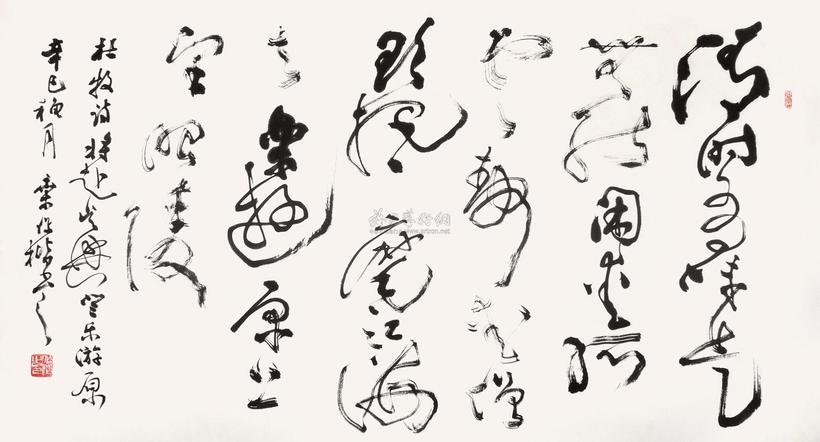 清时有味是
無能闲爱孤
云静爱僧
欲把一麾江海
去樂遊原上
望昭陵
杜牧诗将赴吴興登乐游原
辛巳 月 书之
www.artron.net